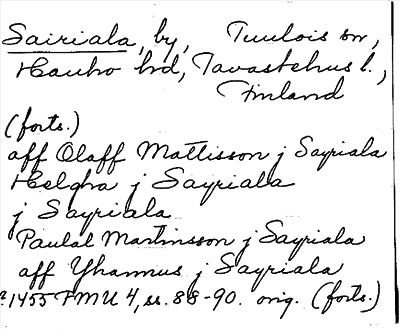 Sairiala, by, Tuulois sn,
Hauho hd, Tavastehus l.,
Finland
(forts.)
aff Olaff Mattisson j Sayriala
Helgha j Sayriala
j Sayriala
Paulal Martinsson j Sayriala
aff Yhannus j Sayriala
1455 FMU 4, ss. 88-90. orig. (forts.)